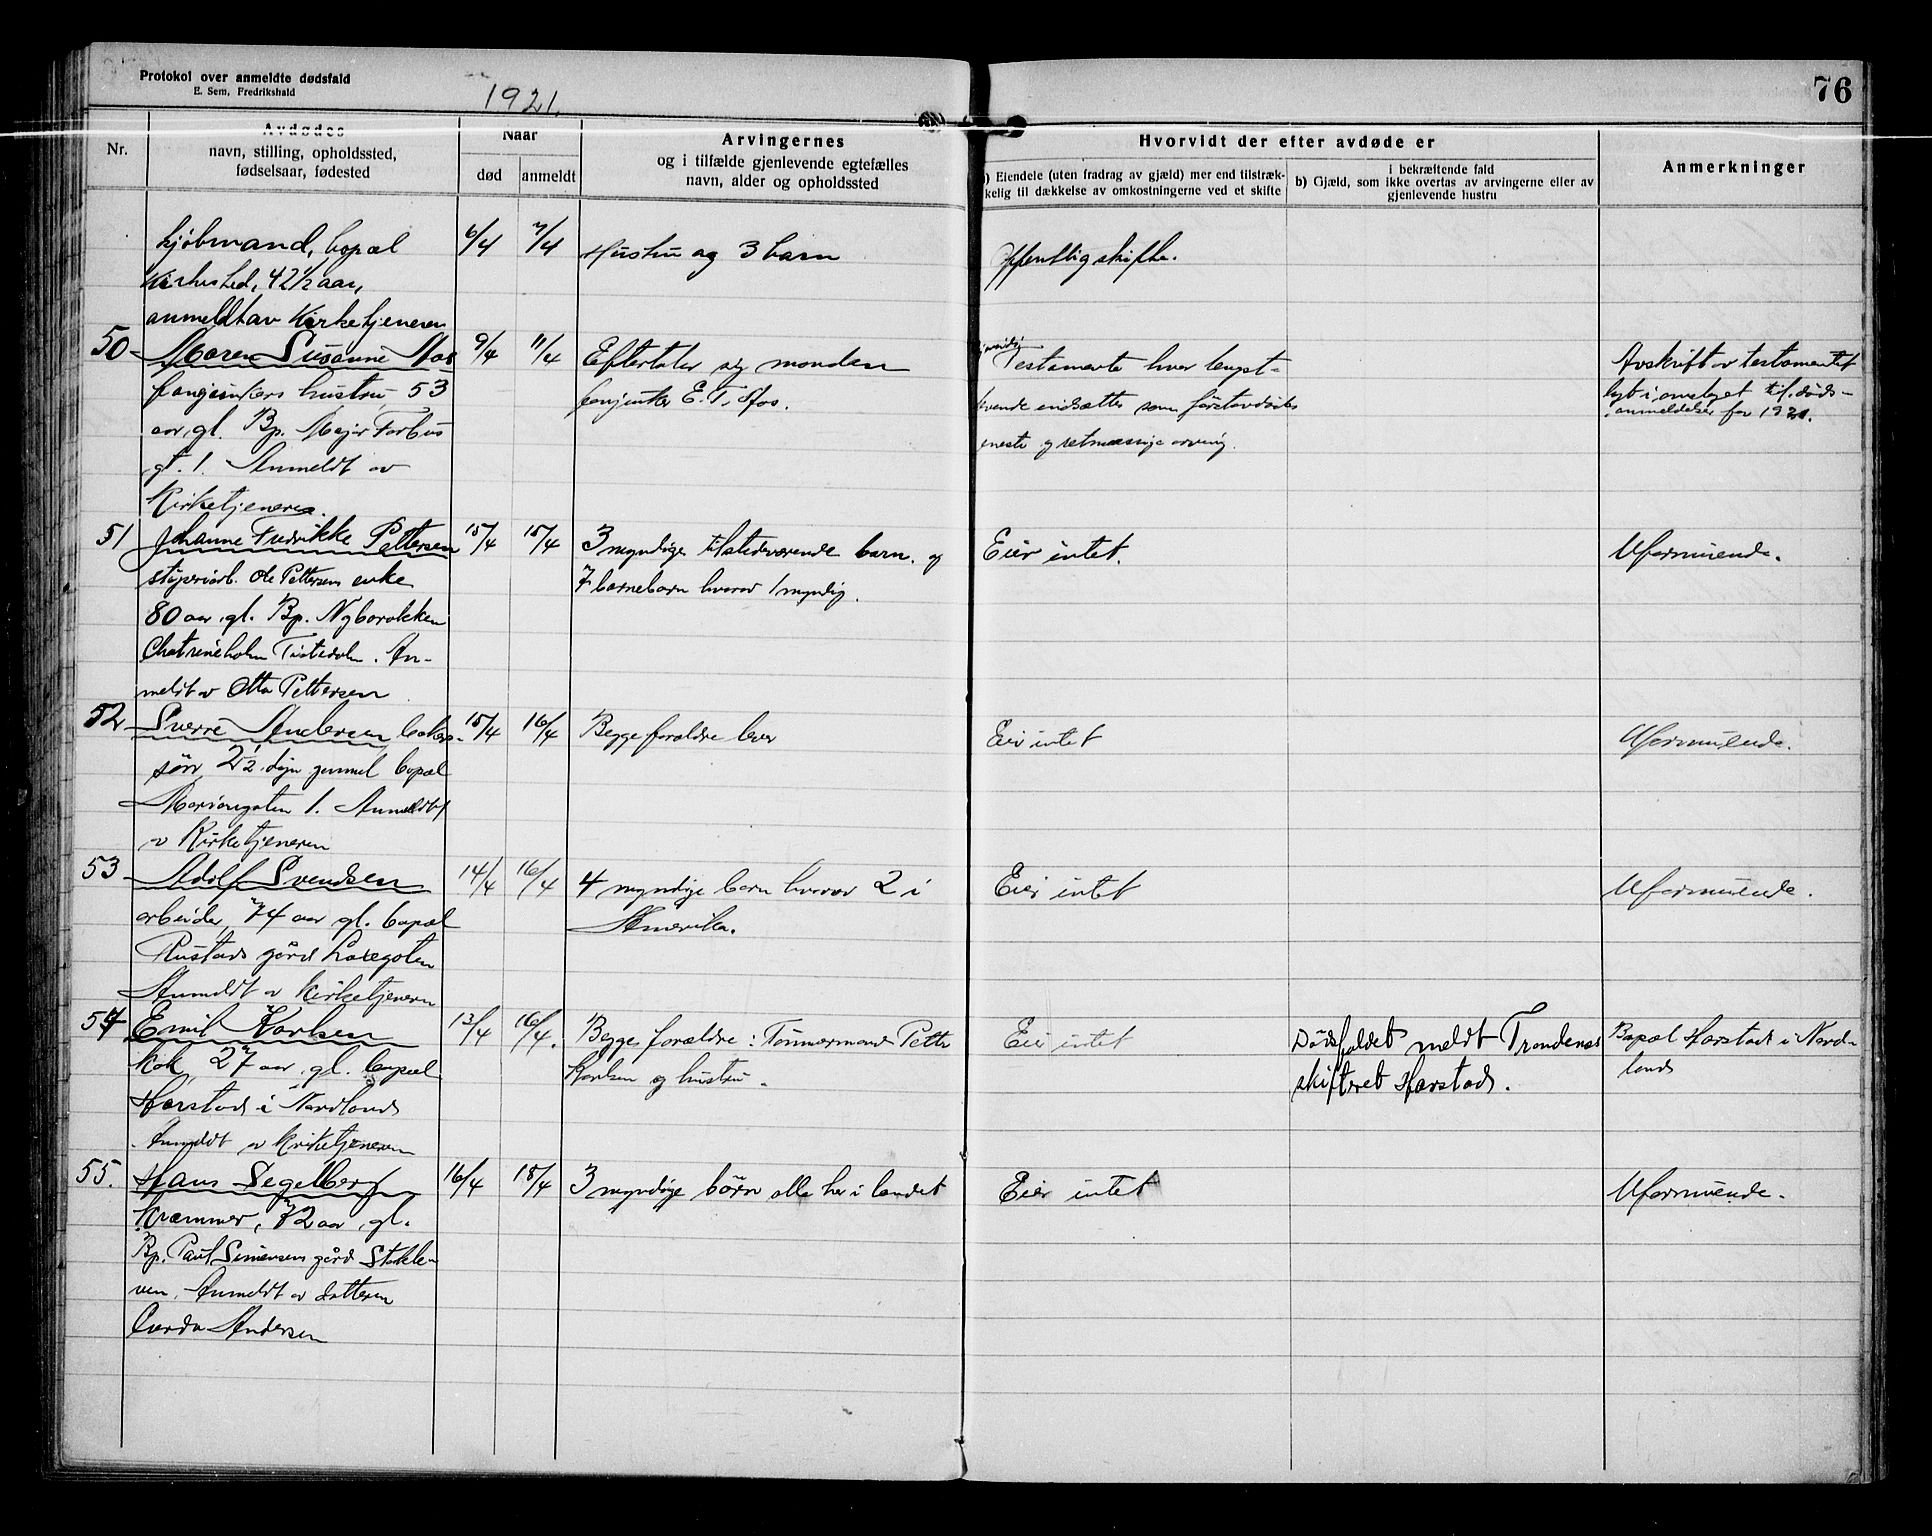 Protokol over anmeldte dødsfald
E. Sem, Fredrikshald
1921.
76
Nr.
Avdødes
navn, stilling, opholdssted,
fødselsaar, fødested
Naar
død
anmeldt
Arvingernes
og i tilfælde gjenlevende egtefælles
navn, alder og opholdssted
Hvorvidt der efter avdøde er
) Eiendele (uten fradrag av gjæld) mer end tilstræk-
kelig til dækkelse av omkostningerne ved et skifte
i bekræftende fald
b) Gjæld, som ikke overtas av arvingerne eller av
gjenlevende hustru
Anmerkninger
kjøbmand, bopæl
Kirkested, 42 1/2 aar,
anmeldt av Kirketjeneren
6/4
7/4
Hustru og 3 barn
Offentlig skifte.
50
Maren Susanne Aas
fanejunkers hustru, 53
aar gl. Bp. Major Forbus
gt. 1. Anmeldt av
Kirketjeneren.
9/4
11/4
Efterlater sig manden
fanejunker E. T. Aas.
Testamente hvor lengst-
levende indsættes som førstavdødes
eneste og retmæssige arving.
Avskrift av testamentet
lagt i omslaget til døds-
anmeldelser for 1921.
51
Johanne Fredrikke Pettersen
støperiarb. Ole Pettersens enke
80 aar gl. Bp. Nyborokken
Chatrineholm Tistedalen. An-
meldt av Otto Pettersen
15/4
15/4
3 myndige tilstedeværende barn. og
7 barnebarn hvorav 1 myndig.
Eier intet.
Uformuende.
52
Sverre Andersen bakers-
søn 2 1/2 døgn gammel bopæl
Mariangaten 1. Anmeldt
av Kirketjeneren
15/4
16/4
Begge forældre lever
Eier intet
Uformuende.
53
Adolf Svendsen
arbeider, 74 aar gl. bopæl
Rustads gård Laxegaten
Anmeldt av Kirketjeneren
14/4
16/4
4 myndige barn hvorav 2 i
Amerika.
Eier intet
Uformuende.
54
Emil Karlsen
Kok, 27 aar gl. bopæl
Harstad i Nordlands
Anmeldt av kirketjeneren
13/4
16/4.
Begge forældre: Tømmermand Petter
Karlsen og hustru.
Eier intet
Dødsfaldet meldt Trondenes
skifteret Harstad.
Bopæl Harstad i Nord-
land
55.
Hans Segelberg
Kræmmer, 72 aar gl.
Bp. Paul Simensens gård Stokle-
ven. Anmeldt av datteren
Andersen
16/4
18/4
3 myndige børn alle her i landet
Eier intet
Uformuende.